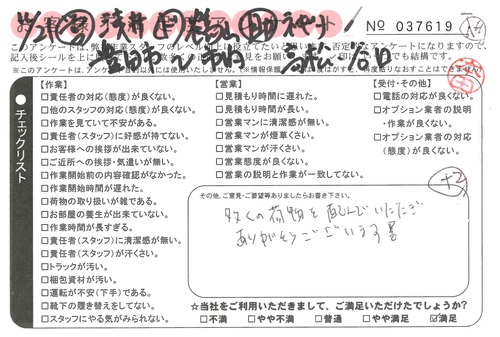 № 037619
このアンケートは、弊
記入後シールを上に
でも結構です。
【作業】
□責任者の対応(態度)が良くない。
□他のスタッフの対応(態度)が良くない。
□作業を見ていて不安がある。
□責任者(スタッフ)に好感が持てない。
□お客様への挨拶が出来ていない。
□ご近所への挨拶・気遣いが無い。
□作業開始前の内容確認がなかった。
□作業開始時間が遅れた。
□荷物の取り扱いが雑である。
□お部屋の養生が出来ていない。
□作業時間が長すぎる。
□責任者(スタッフ)に清潔感が無い。
□責任者(スタッフ)が汗くさい。
□トラックが汚い。
□梱包資材が汚い。
□運転が不安(下手)である。
□靴下の履き替えをしてない。
□スタッフにやる気がみられない。
【営業】
□見積もり時間に遅れた。
□見積もり時間が長い。
□営業マンに清潔感が無い。
□営業マンが煙草くさい。
□営業マンが汗くさい。
□営業態度が良くない。
□営業の説明と作業が一致してない。
【受付・その他】
□電話の対応が良くない。
□オプション業者の説明
・作業が良くない。
□オプション業者の対応
(態度)が良くない。
チェックリスト
+2
その他、ご意見・ご要望等ありましたらお書き下さい。
多くの荷物を運んでいただき
ありがとうございます
☆当社をご利用いただきまして、ご満足いただけたでしょうか?
□不満 □やや不満 □普通 □やや満足 ☑満足